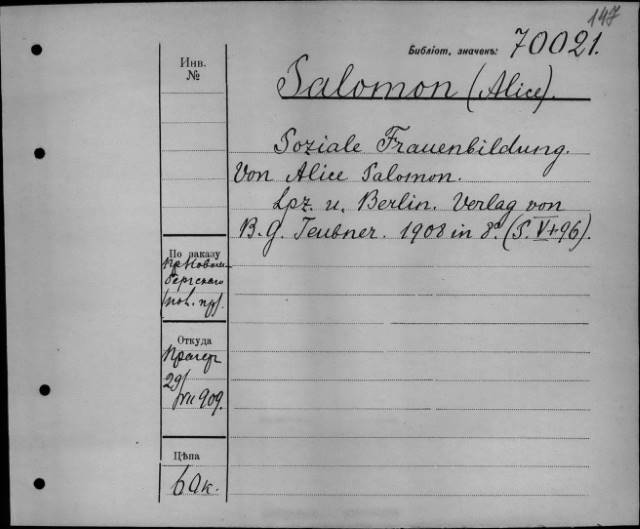 147
Библіот. значекъ: 70021.
Salomon (Alice).
Инв.
№
Soziale Frauenbildung.
Von Alice Salomon.
Lpz. u. Berlin. Verlag von
B. G. Teubner. 1908 in 8° (S. V+96).
По заказу
Откуда
Прагер
29/
VII 909.
Цѣна
60 к.